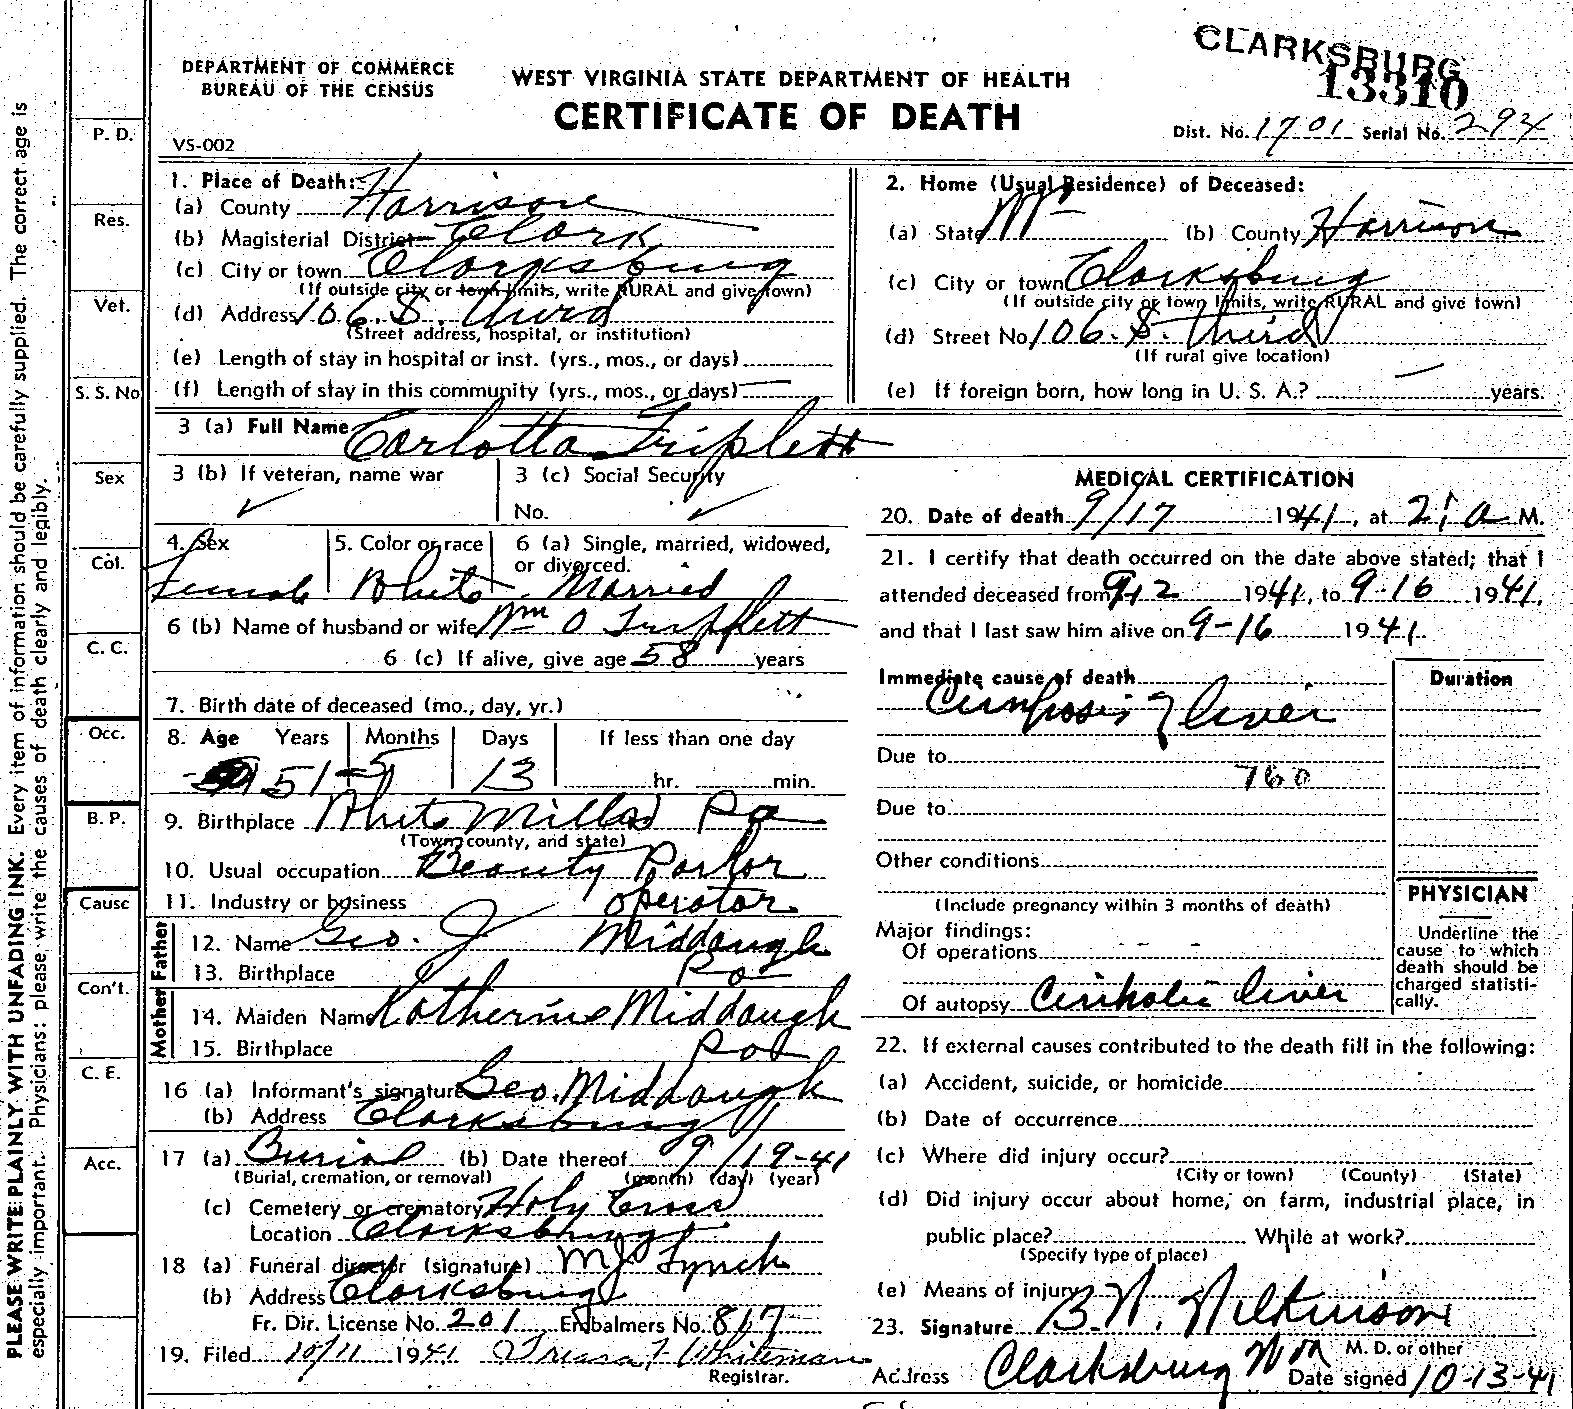 CLARKSBURG
13310
DEPARTMENT OF COMMERCE
BUREAU OF THE CENSUS
WEST VIRGINIA STATE DEPARTMENT OF HEALTH
CERTIFICATE OF DEATH
VS-002
Dist. No. 1701 Serial No. 294
PLEASE WRITE PLAINLY WITH UNFADING INK. Every item of information should be carefully supplied. The correct age is
especially important. Physicians: please write the causes of death clearly and legibly.
P. D.
Res.
Vet.
S. S. No
Sex
Col.
C. C.
Occ.
B. P.
Cause
Con't.
C. E.
Acc.
1. Place of Death:
(a) County Harrison
(b) Magisterial District Clark
(c) City or town Clarksburg
(If outside city or town limits, write RURAL and give town)
(d) Address 106 S. Third
(Street address, hospital, or institution)
(e) Length of stay in hospital or inst. (yrs., mos., or days)
(f) Length of stay in this community (yrs., mos., or days)
2. Home (Usual Residence) of Deceased:
(a) State (b) County Harrison
(c) City or town Clarksburg
(If outside city or town limits, write RURAL and give town)
(d) Street No. 106 S. Third
(If rural give location)
(e) If foreign born, how long in U. S. A.? — years.
3 (a) Full Name Carlotta Triplett
3 (b) If veteran, name war ✓
3 (c) Social Security
No. ✓
4. Sex Female
5. Color or race White
6 (a) Single, married, widowed,
or divorced. Married
6 (b) Name of husband or wife Wm O Triplett
6 (c) If alive, give age 58 years
7. Birth date of deceased (mo., day, yr.)
8. Age Years Months Days If less than one day
51 5 13 hr. min.
9. Birthplace White Mills Pa
(Town, county, and state)
10. Usual occupation Beauty Parlor
11. Industry or business operator
Father
12. Name Geo. J Middaugh
13. Birthplace Pa
Mother
14. Maiden Name Katherine Middaugh
15. Birthplace Pa
16 (a) Informant's signature Geo. Middaugh
(b) Address Clarksburg
17 (a) Burial (b) Date thereof 9/19-41
(Burial, cremation, or removal) (month) (day) (year)
(c) Cemetery or crematory Holy Cross
Location Clarksburg
18 (a) Funeral director (signature) MJ Lynch
(b) Address Clarksburg
Fr. Dir. License No. 201 Embalmers No. 817
19. Filed 10/11 1941 Whiteman
Registrar.
MEDICAL CERTIFICATION
20. Date of death 9/17 1941, at 2; a M.
21. I certify that death occurred on the date above stated; that I
attended deceased from 9-12 1941, to 9-16 1941,
and that I last saw him alive on 9-16 1941.
Immediate cause of death
Cirrhosis of liver
Duration
Due to
760
Due to
Other conditions
(Include pregnancy within 3 months of death)
Major findings:
Of operations
Of autopsy Cirrhotic liver
PHYSICIAN
Underline the
cause to which
death should be
charged statisti-
cally.
22. If external causes contributed to the death fill in the following:
(a) Accident, suicide, or homicide
(b) Date of occurrence
(c) Where did injury occur?
(City or town) (County) (State)
(d) Did injury occur about home, on farm, industrial place, in
public place? While at work?
(Specify type of place)
(e) Means of injury
23. Signature B. N. Wilkinson
M. D. or other
Address Clarksburg
Date signed 10-13-41